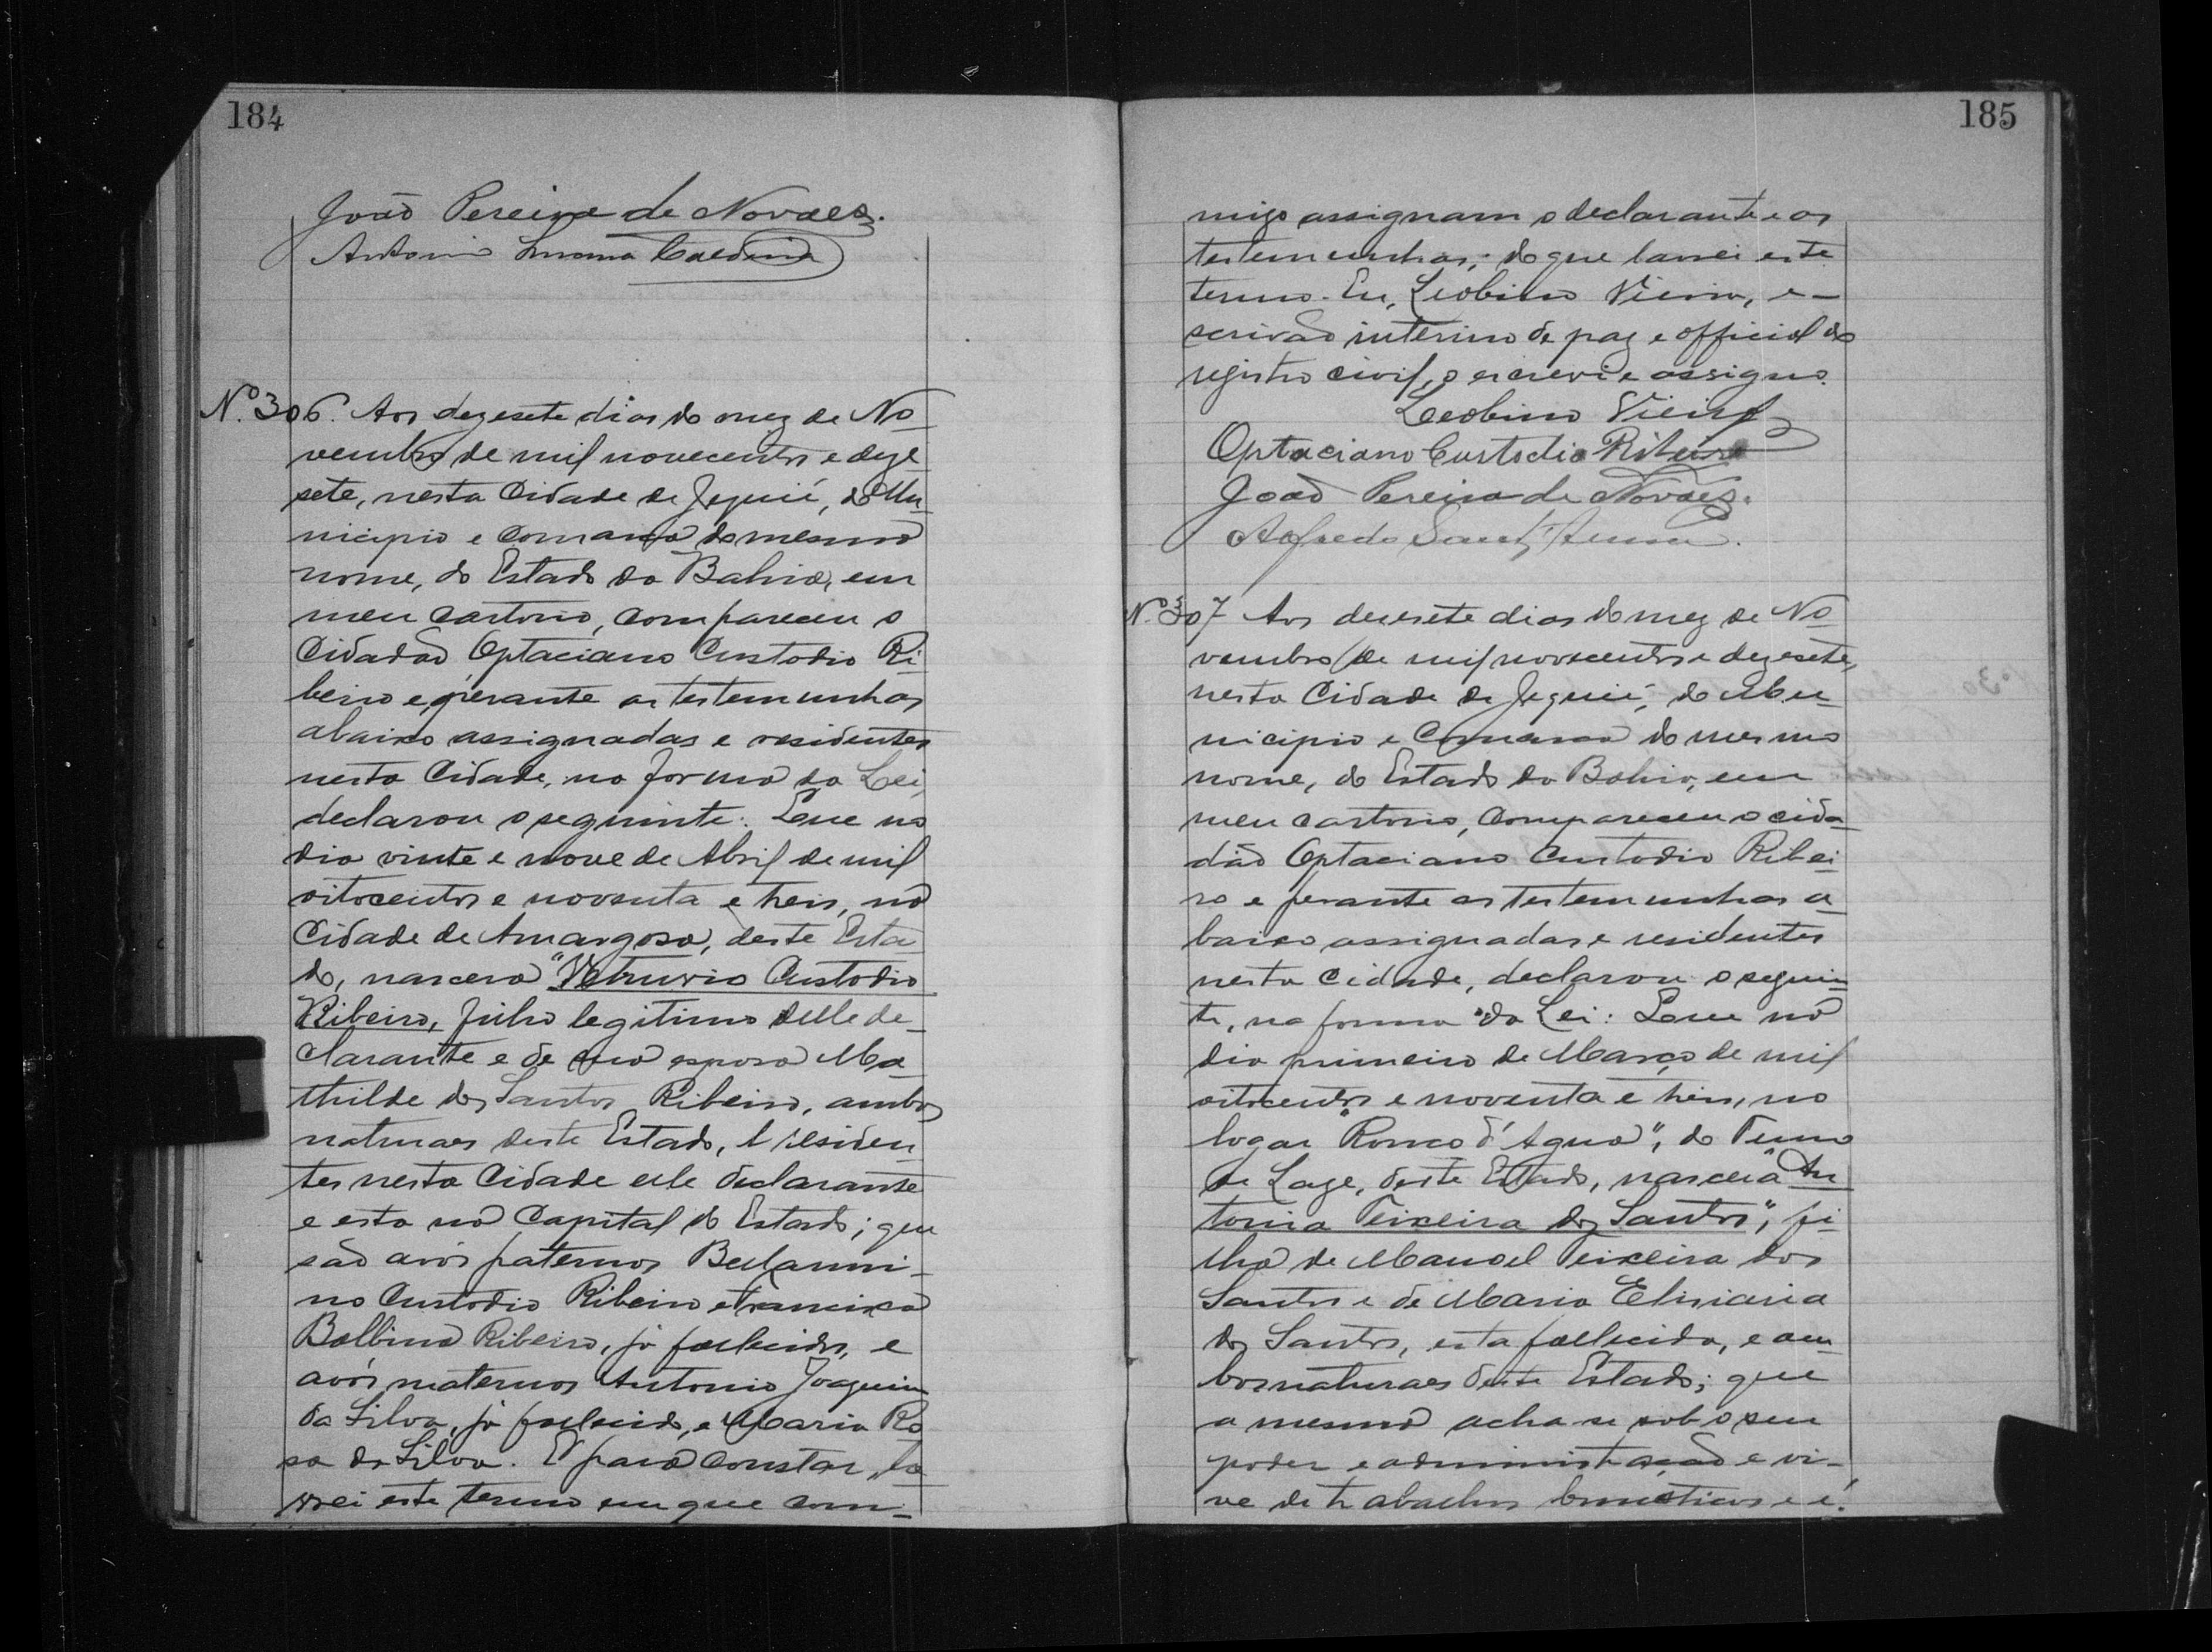 184
João Pereira de Novaes.
Antonio
Nº. 306. Aos dezesete dias do mez de No
vembro de mil novecentos e deze
sete, nesta Cidade de Jequié, do Mu
nicipio e Comarca do mesmo
nome, do Estado da Bahia, em
meu cartorio, compareceu o
Cidadão Optaciano Custodio Ri
beiro e, perante as testemunhas
abaixo assignadas e residentes
nesta Cidade, na forma da Lei,
declarou o seguinte: Que no
dia vinte e nove de Abril de mil
oitocentos e noventa e treis, na
Cidade de Amargosa, deste Esta
do, nascera "Vetruvio Custodio
Ribeiro, filho legitimo delle de_
clarante e de sua esposa Ma_
thilde dos Santos Ribeiro, ambos
naturaes deste Estado, e residen_
tes nesta Cidade elle declarante
e esta na Capital do Estado; que
são avós paternos Bellarmi_
no Custodio Ribeiro e Francisca
Balbina Ribeiro, já fallecidos, e
avós maternos Antonio Joaquim
da Silva, já fallecido, e Maria Ro
sa da Silva. E para constar, la
vrei este termo em que com_
185
migo assignam o declarante e as
testemunhas; do que lavrei este
termo. Eu, Leobino Vieira, e_
scrivão interino de paz e official do
registro civil, o escrevi e assigno.
Leobino Vieira
Optaciano Custodio Ribeiro
João Pereira de Novaes.
Alfredo Sant'Anna.
Nº. 307 Aos dezesete dias do mez de No
vembro de mil novecentos e dezesete,
nesta Cidade de Jequié, do Mu_
nicipio e Comarca do mesmo
nome, do Estado da Bahia, em
meu cartorio, compareceu o cida_
dão Optaciano Custodio Ribei_
ro e perante as testemunhas a_
baixo assignadas e residentes
nesta cidade, declarou o seguin_
te, na forma da Lei: Que no
dia primeiro de Março de mil
oitocentos e noventa e treis, no
logar "Ronco d'Agua", do Termo
de Lage, deste Estado, nascera "An
tonia Teixeira dos Santos", fi_
lha de Manoel Teixeira dos
Santos e de Maria
dos Santos, esta fallecida, e am_
bos naturaes deste Estado; que
a mesma acha-se sob o seu
poder e administração e vi_
ve de trabalhos domesticos e é.